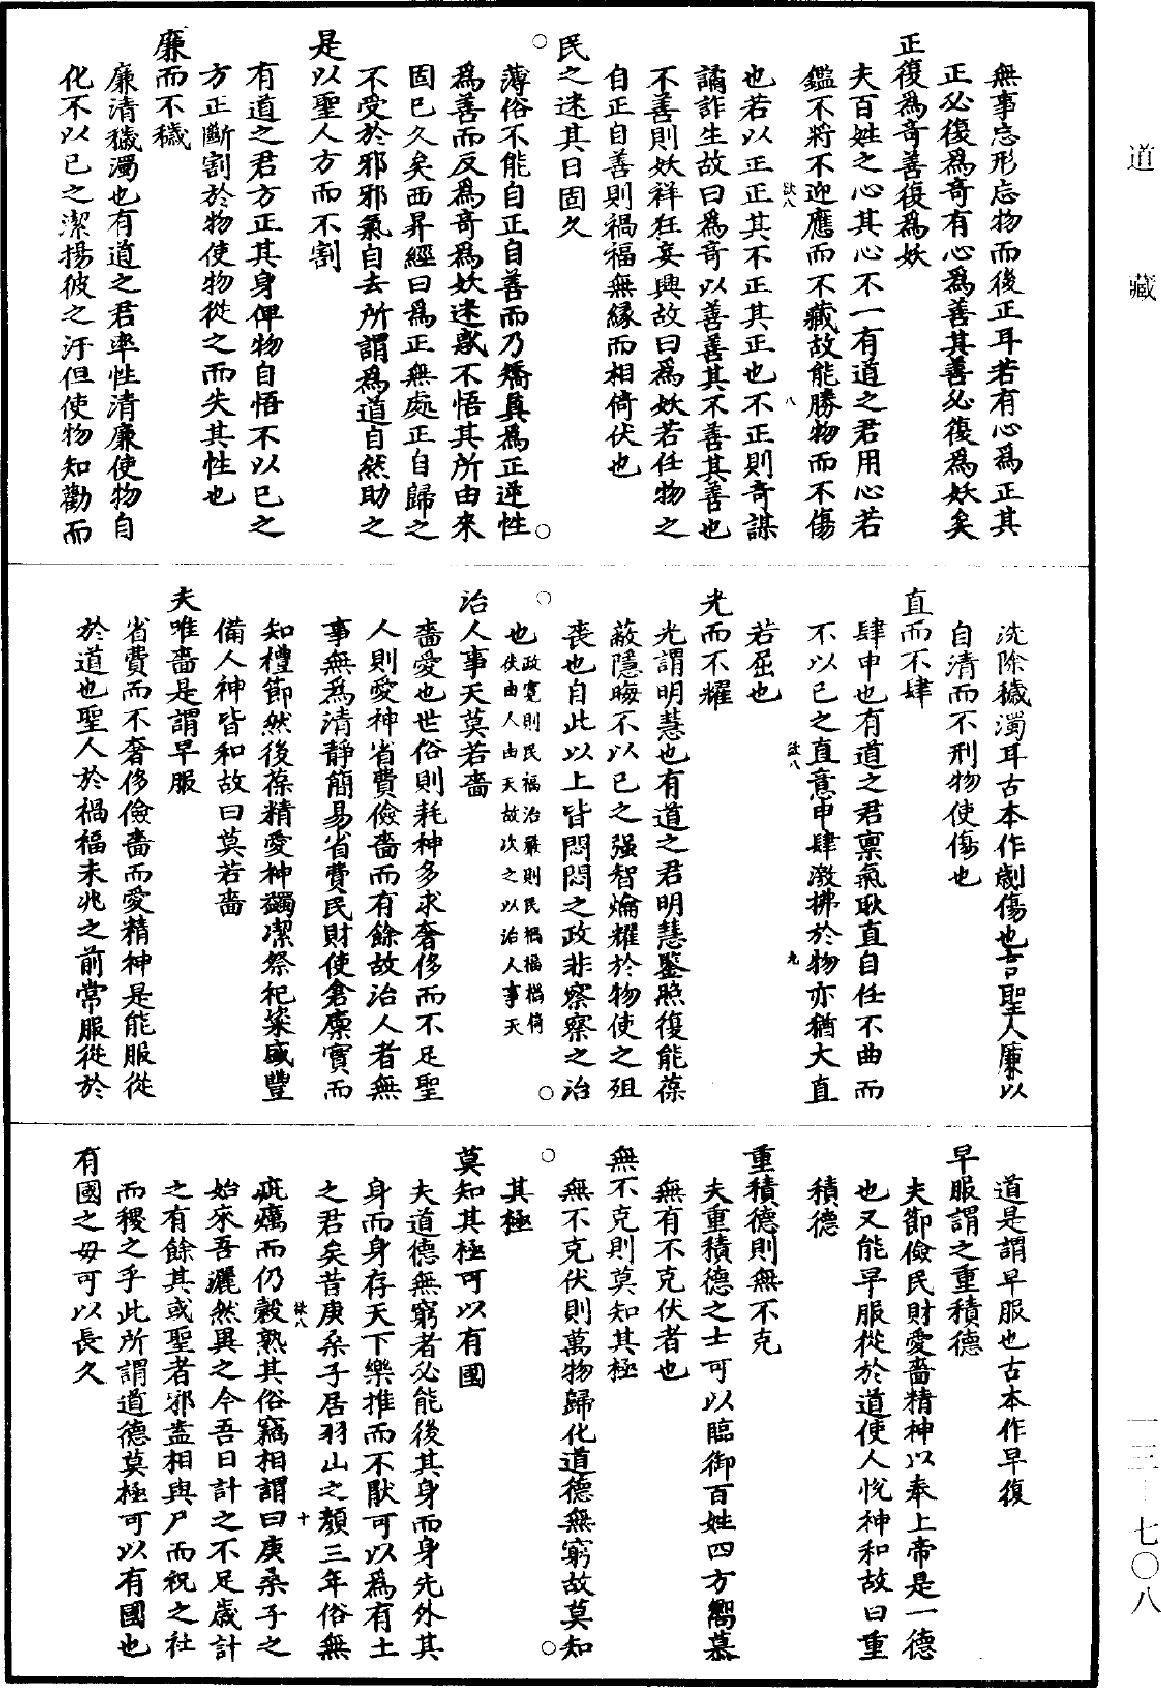 道藏
無事忘形忘物而後正耳若有心爲正其
正必復爲奇有心爲善其善必復爲妖矣
正復爲奇善復爲妖
夫百姓之心其心不一有道之君用心若
鑑不將不迎應而不藏故能勝物而不傷
也若以正正其不正其正也不正則奇謀
譎詐生故曰爲奇以善善其不善其善也
不善則妖祥狂妄興故曰爲妖若任物之
自正自善則禍福無緣而相倚伏也
民之迷其日固久
薄俗不能自正自善而乃矯真爲正逆性
爲善而反爲奇爲妖迷惑不悟其所由來
固已久矣西昇經曰爲正無處正自歸之
不受於邪邪氣自去所謂爲道自然助之
是以聖人方而不割
有道之君方正其身俾物自悟不以已之
方正斷割於物使物從之而失其性也
廉而不穢
廉清穢濁也有道之君率性清廉使物自
化不以已之潔揚彼之汙但使物知勸而
洗除穢濁耳古本作劌傷也言聖人廉以
自清而不刑物使傷也
直而不肆
肆申也有道之君稟氣耿直自任不曲而
不以已之直意申肆激拂於物亦猶大直
若屈也
光而不耀
光謂明慧也有道之君明慧鑒照復能葆
蔽隱晦不以已之强智爚耀於物使之殂
喪也自此以上皆悶悶之政非察察之治
也政寬則民福治嚴則民禍福禍倚
伏由人由天故次之以治人事天
治人事天莫若嗇
嗇愛也世俗則耗神多求奢侈而不足聖
人則愛神省費儉嗇而有餘故治人者無
事無爲清靜簡易省費民財使倉廩實而
知禮節然後葆精愛神蠲潔祭祀粢盛豐
備人神皆和故曰莫若嗇
夫唯嗇是謂早服
省費而不奢侈儉嗇而愛精神是能服從
於道也聖人於禍福未兆之前常服從於
道是謂早服也古本作早復
早服謂之重積德
夫節儉民財愛嗇精神以奉上帝是一德
也又能早服從於道使人悅神和故曰重
積德
重積德則無不克
夫重積德之士可以臨御百姓四方嚮慕
無有不克伏者也
無不克則莫知其極
無不克伏則萬物歸化道德無窮故莫知
其極
莫知其極可以有國
夫道德無窮者必能後其身而身先外其
身而身存天下樂推而不猒可以爲有土
之君矣昔庚桑子居羽山之顏三年俗無
疵癘而仍穀熟其俗竊相謂曰庚桑子之
始來吾灑然異之今吾日計之不足歲計
之有餘其或聖者邪盍相與尸而祝之社
而稷之乎此所謂道德莫極可以有國也
有國之母可以長久
一三—七〇八